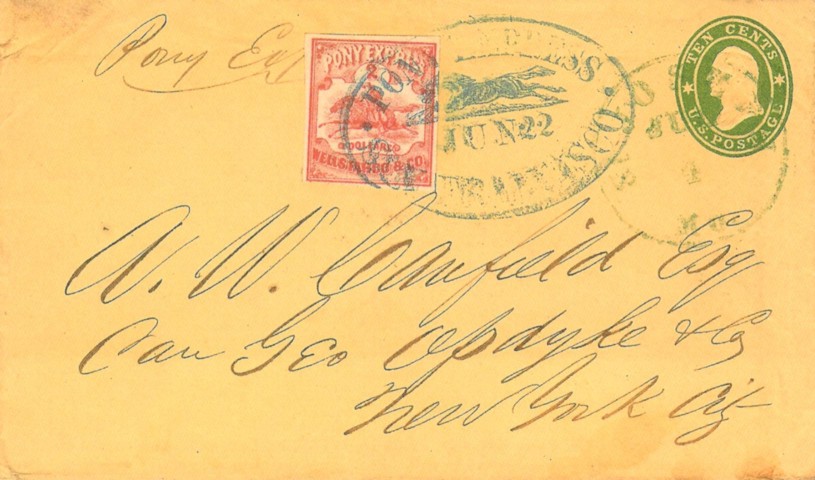 Pony Ex
PONY EXPRESS
2 DOLLARS
WELLS, FARGO & CO.
PONY EXPRESS
JUN 22
SAN FRANCISCO
TEN CENTS
U.S. POSTAGE
A. W. Canfield Esq
Care Geo Opdyke & Co
New York City